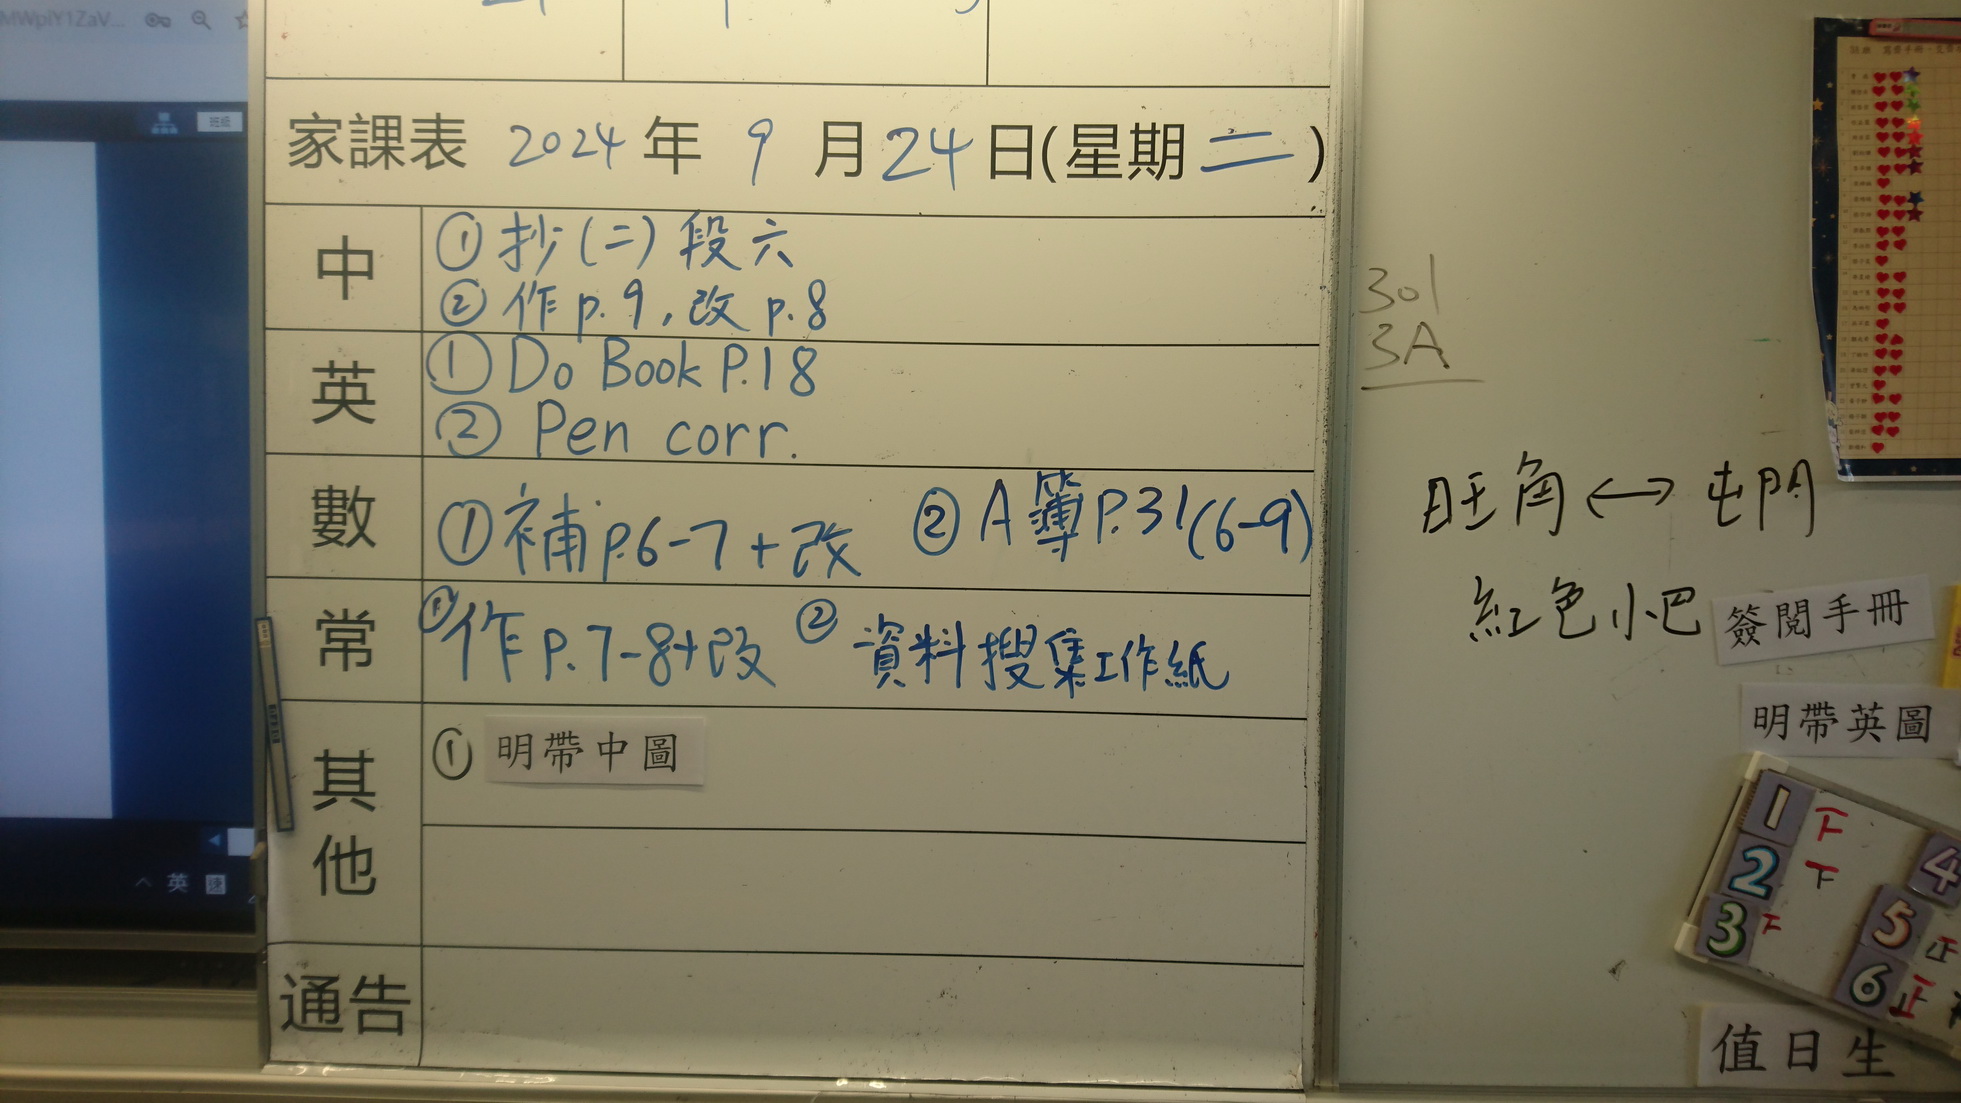 MWpiY1ZaV...
班級
家課表 2024 年 9 月 24 日(星期 二 )
中
① 抄(二) 段六
② 作 p.9, 改 p.8
英
① Do Book P.18
② Pen corr.
數
① 補 p.6-7 + 改 ② A簿 P.31(6-9)
常
① 作 P.7-8+改 ② 資料搜集工作紙
其他
① 明帶中圖
通告
英 速
301
3A
旺角 ↔ 屯門
紅色小巴
簽閱手冊
明帶英圖
1 下
2 下
3 下
4
5 正
6 正
值日生